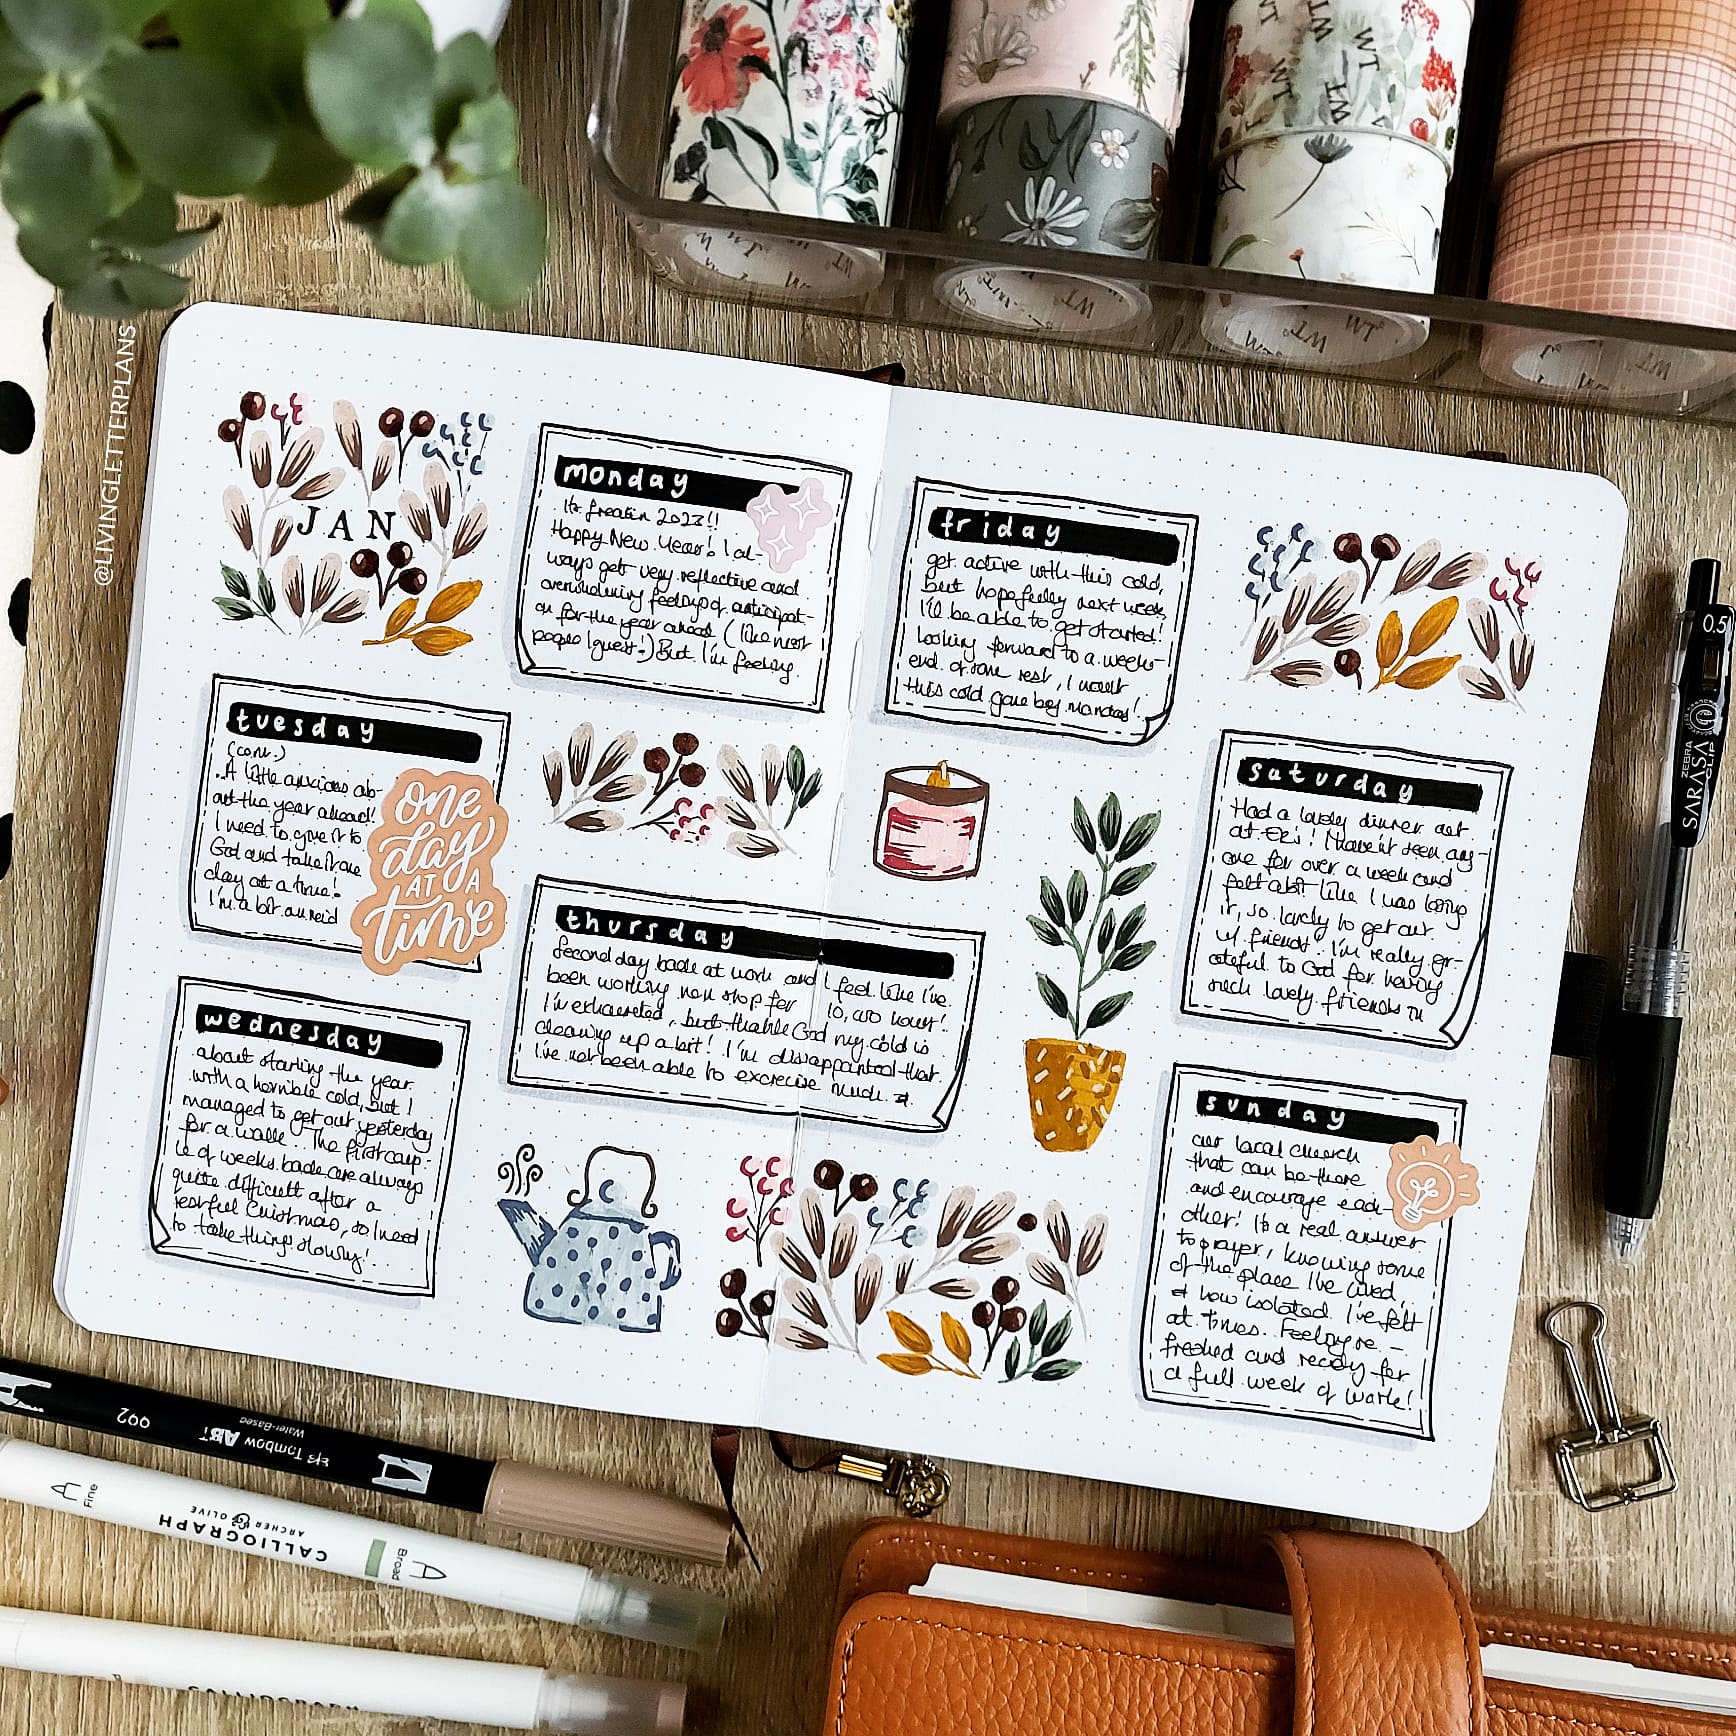 @LIVINGLETTERPLANS
JAN
monday
Its freakin 2023!!
Happy New Year! I al-
ways get very reflective and
overwhelming feelings of anticipat-
on for the year ahead (like most
people I guess!) But I'm feeling
tuesday
(cont.)
..A little anxious ab-
out the year ahead!
I need to give it to
God and take it one
day at a time!
I'm a bit annoid
one
day
AT A
time
wednesday
about starting the year
with a horrible cold, but I
managed to get out yesterday
for a walk. The first coup-
le of weeks back are always
quite difficult after a
restful Christmas, so I need
to take things slowly!
thursday
Second day back at work and I feel like I've
been working non stop for 10,000 hours!
I'm exhausted, but thank God my cold is
clearing up a bit! I'm disappointed that
I've not been able to excercise much &
friday
get active with this cold,
but hopefully next week
I'll be able to get started!
Looking forward to a week-
end of some rest, I want
this cold gone by monday!
saturday
Had a lovely dinner out
at Ek's! I haven't seen any-
one for over a week and
felt abit like I was losing
it, so lovely to get out
w/ friends! I'm really gr-
ateful to God for having
such lovely friends in
sunday
our local church
that can be there
and encourage each
other! Its a real answer
to prayer, knowing some
of the place I've lived,
& how isolated I've felt
at times. Feeling re-
freshed and ready for
a full week of work!
WT
0.5
ZEBRA
SARASA CLIP
992
Tombow ABT
Water-Based
Fine
CALLIGRAPH
ARCHER & OLIVE
Broad